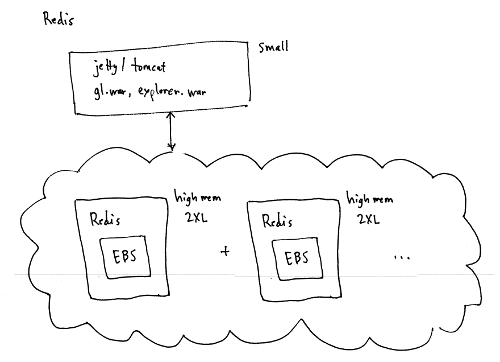 Redis
small
jetty / tomcat
gl.war, explorer.war
high mem
2XL
Redis
EBS
+
high mem
2XL
Redis
EBS
...